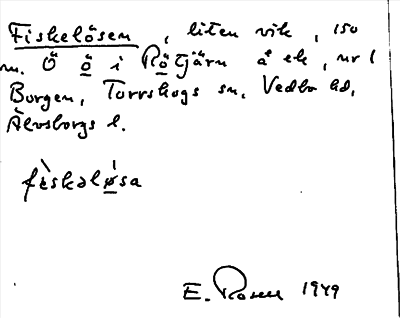 Fiskelösen, liten vik, 150
m. Ö ö i Rötjärn å ek, nr 1
Borgen, Torrskogs sn, Vedbo hd,
Älvsborgs l.
fèskəlø̀sa
E. Rosell 1949